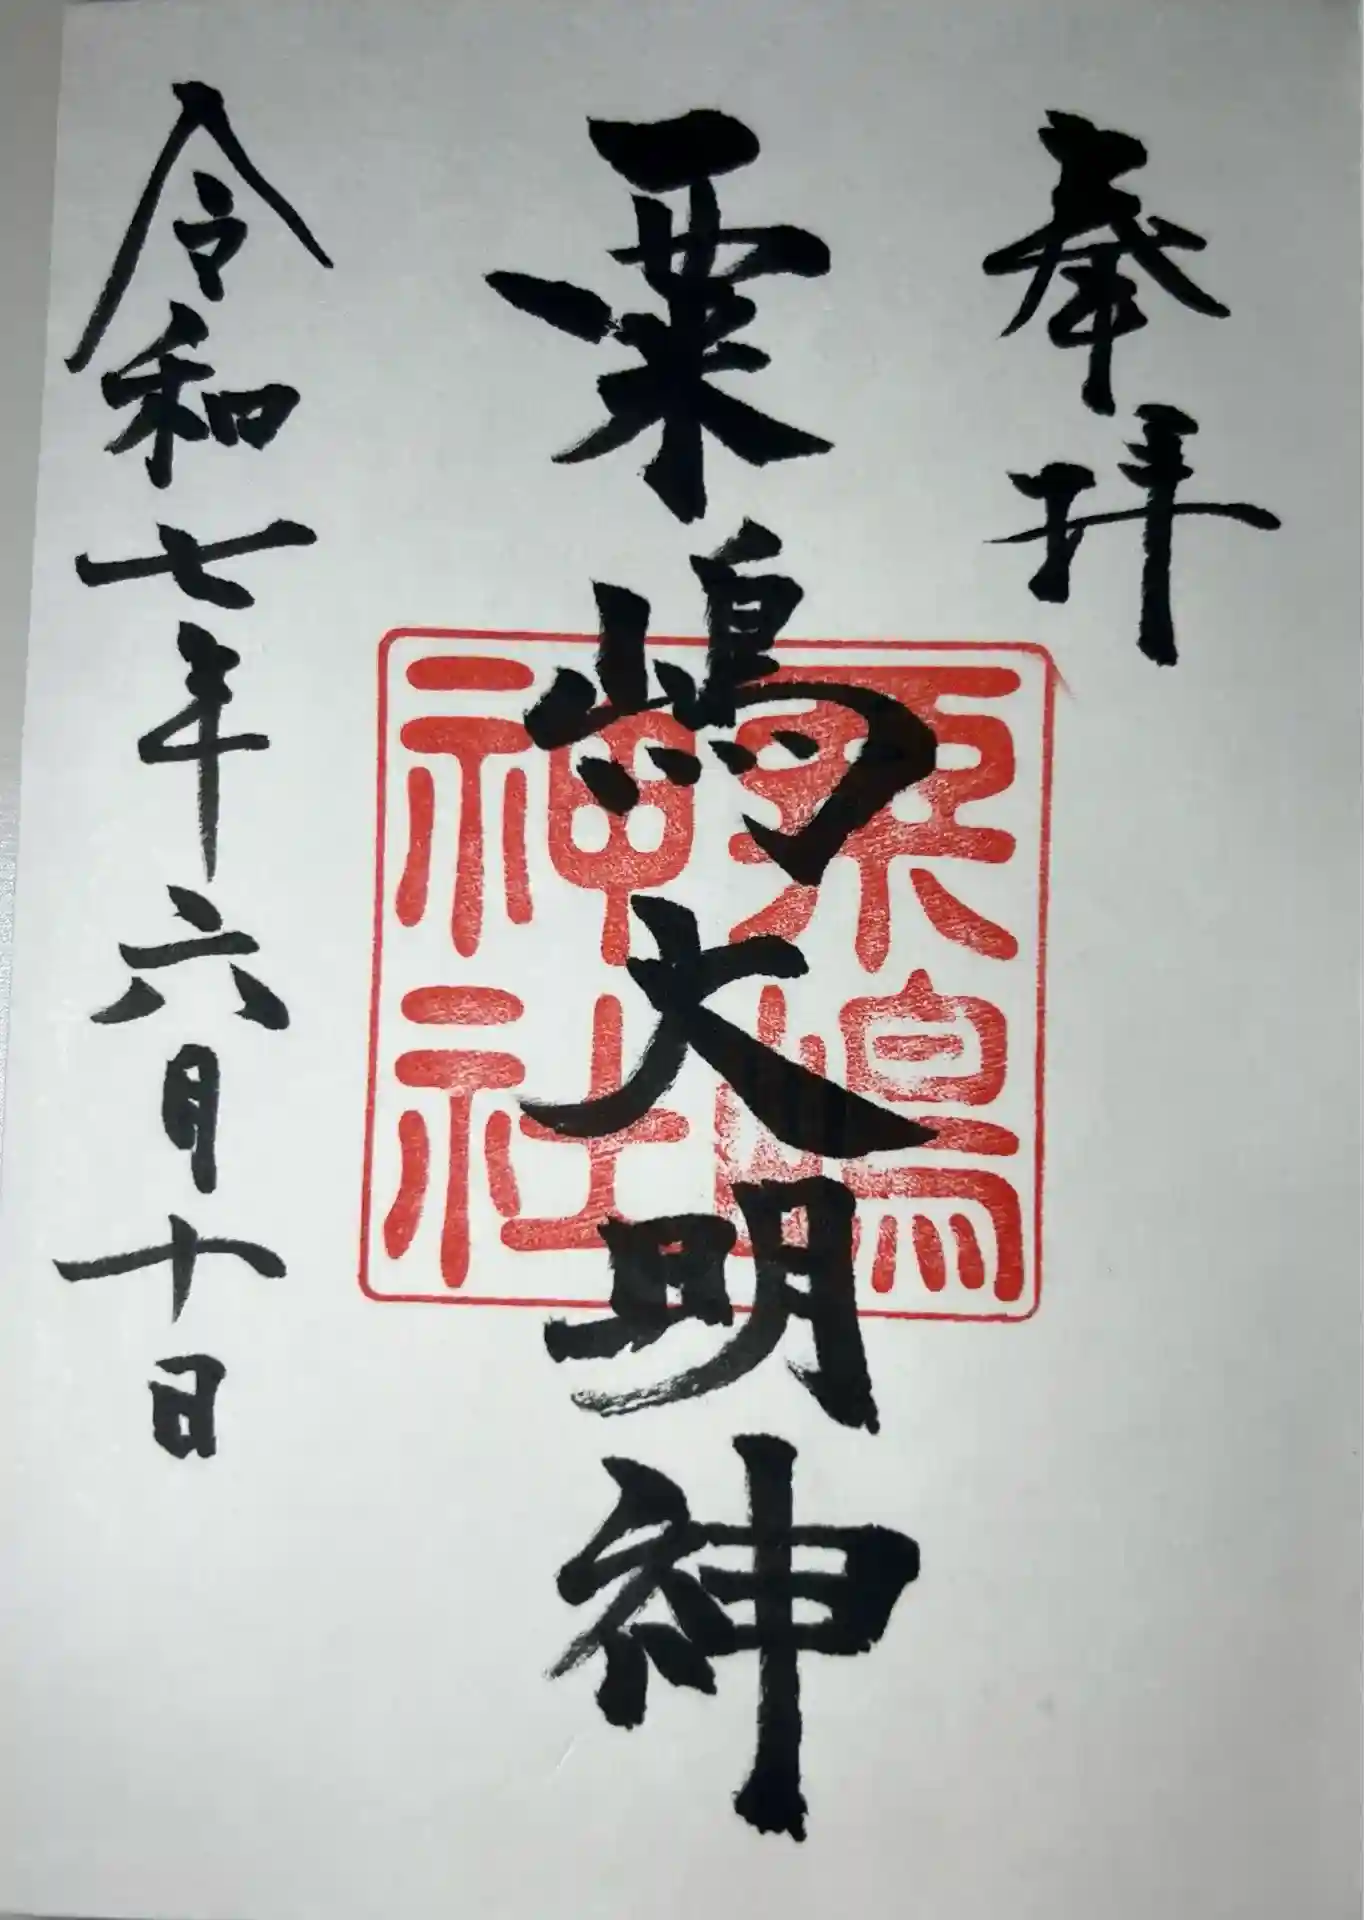 奉拝
粟嶋大明神
粟嶋
神社
令和七年六月十日